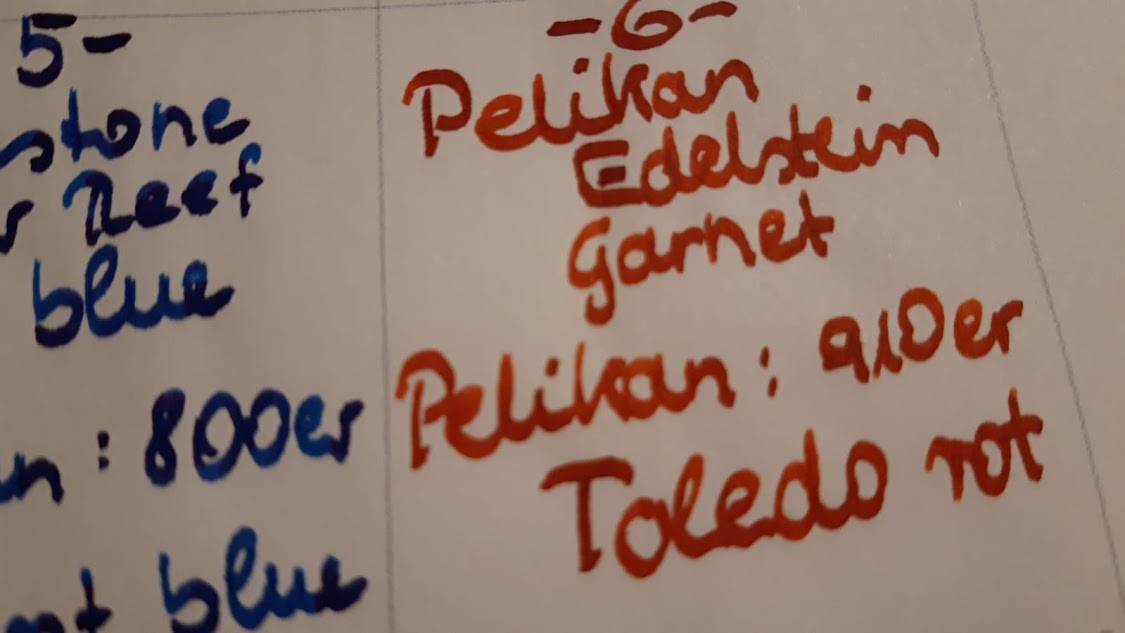 5-
stone
Reef
blue
: 800er
blue
-6-
Pelikan
Edelstein
Garnet
Pelikan: 910er
Toledo rot